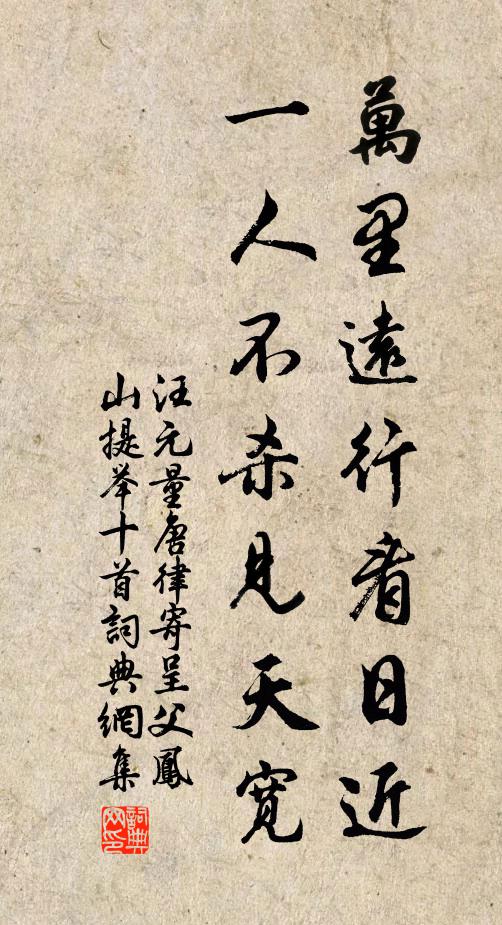 萬里遠行看日近
一人不杀見天寬
汪元量唐律寄呈父鳳
山提举十首詞典網集
詞典
网印